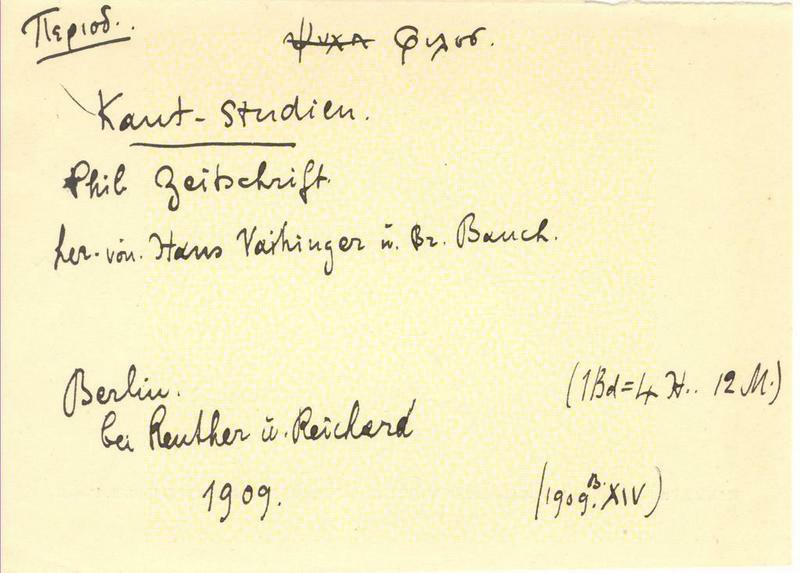 Περιοδ.
ψυχλ φιλοσ.
Kant-Studien.
Phil Zeitschrift.
her. von. Hans Vaihinger u. Br. Bauch.
Berlin.
(1Bd=4 H.. 12 M.)
bei Reuther u. Reichard
1909.
(1909. B. XIV)